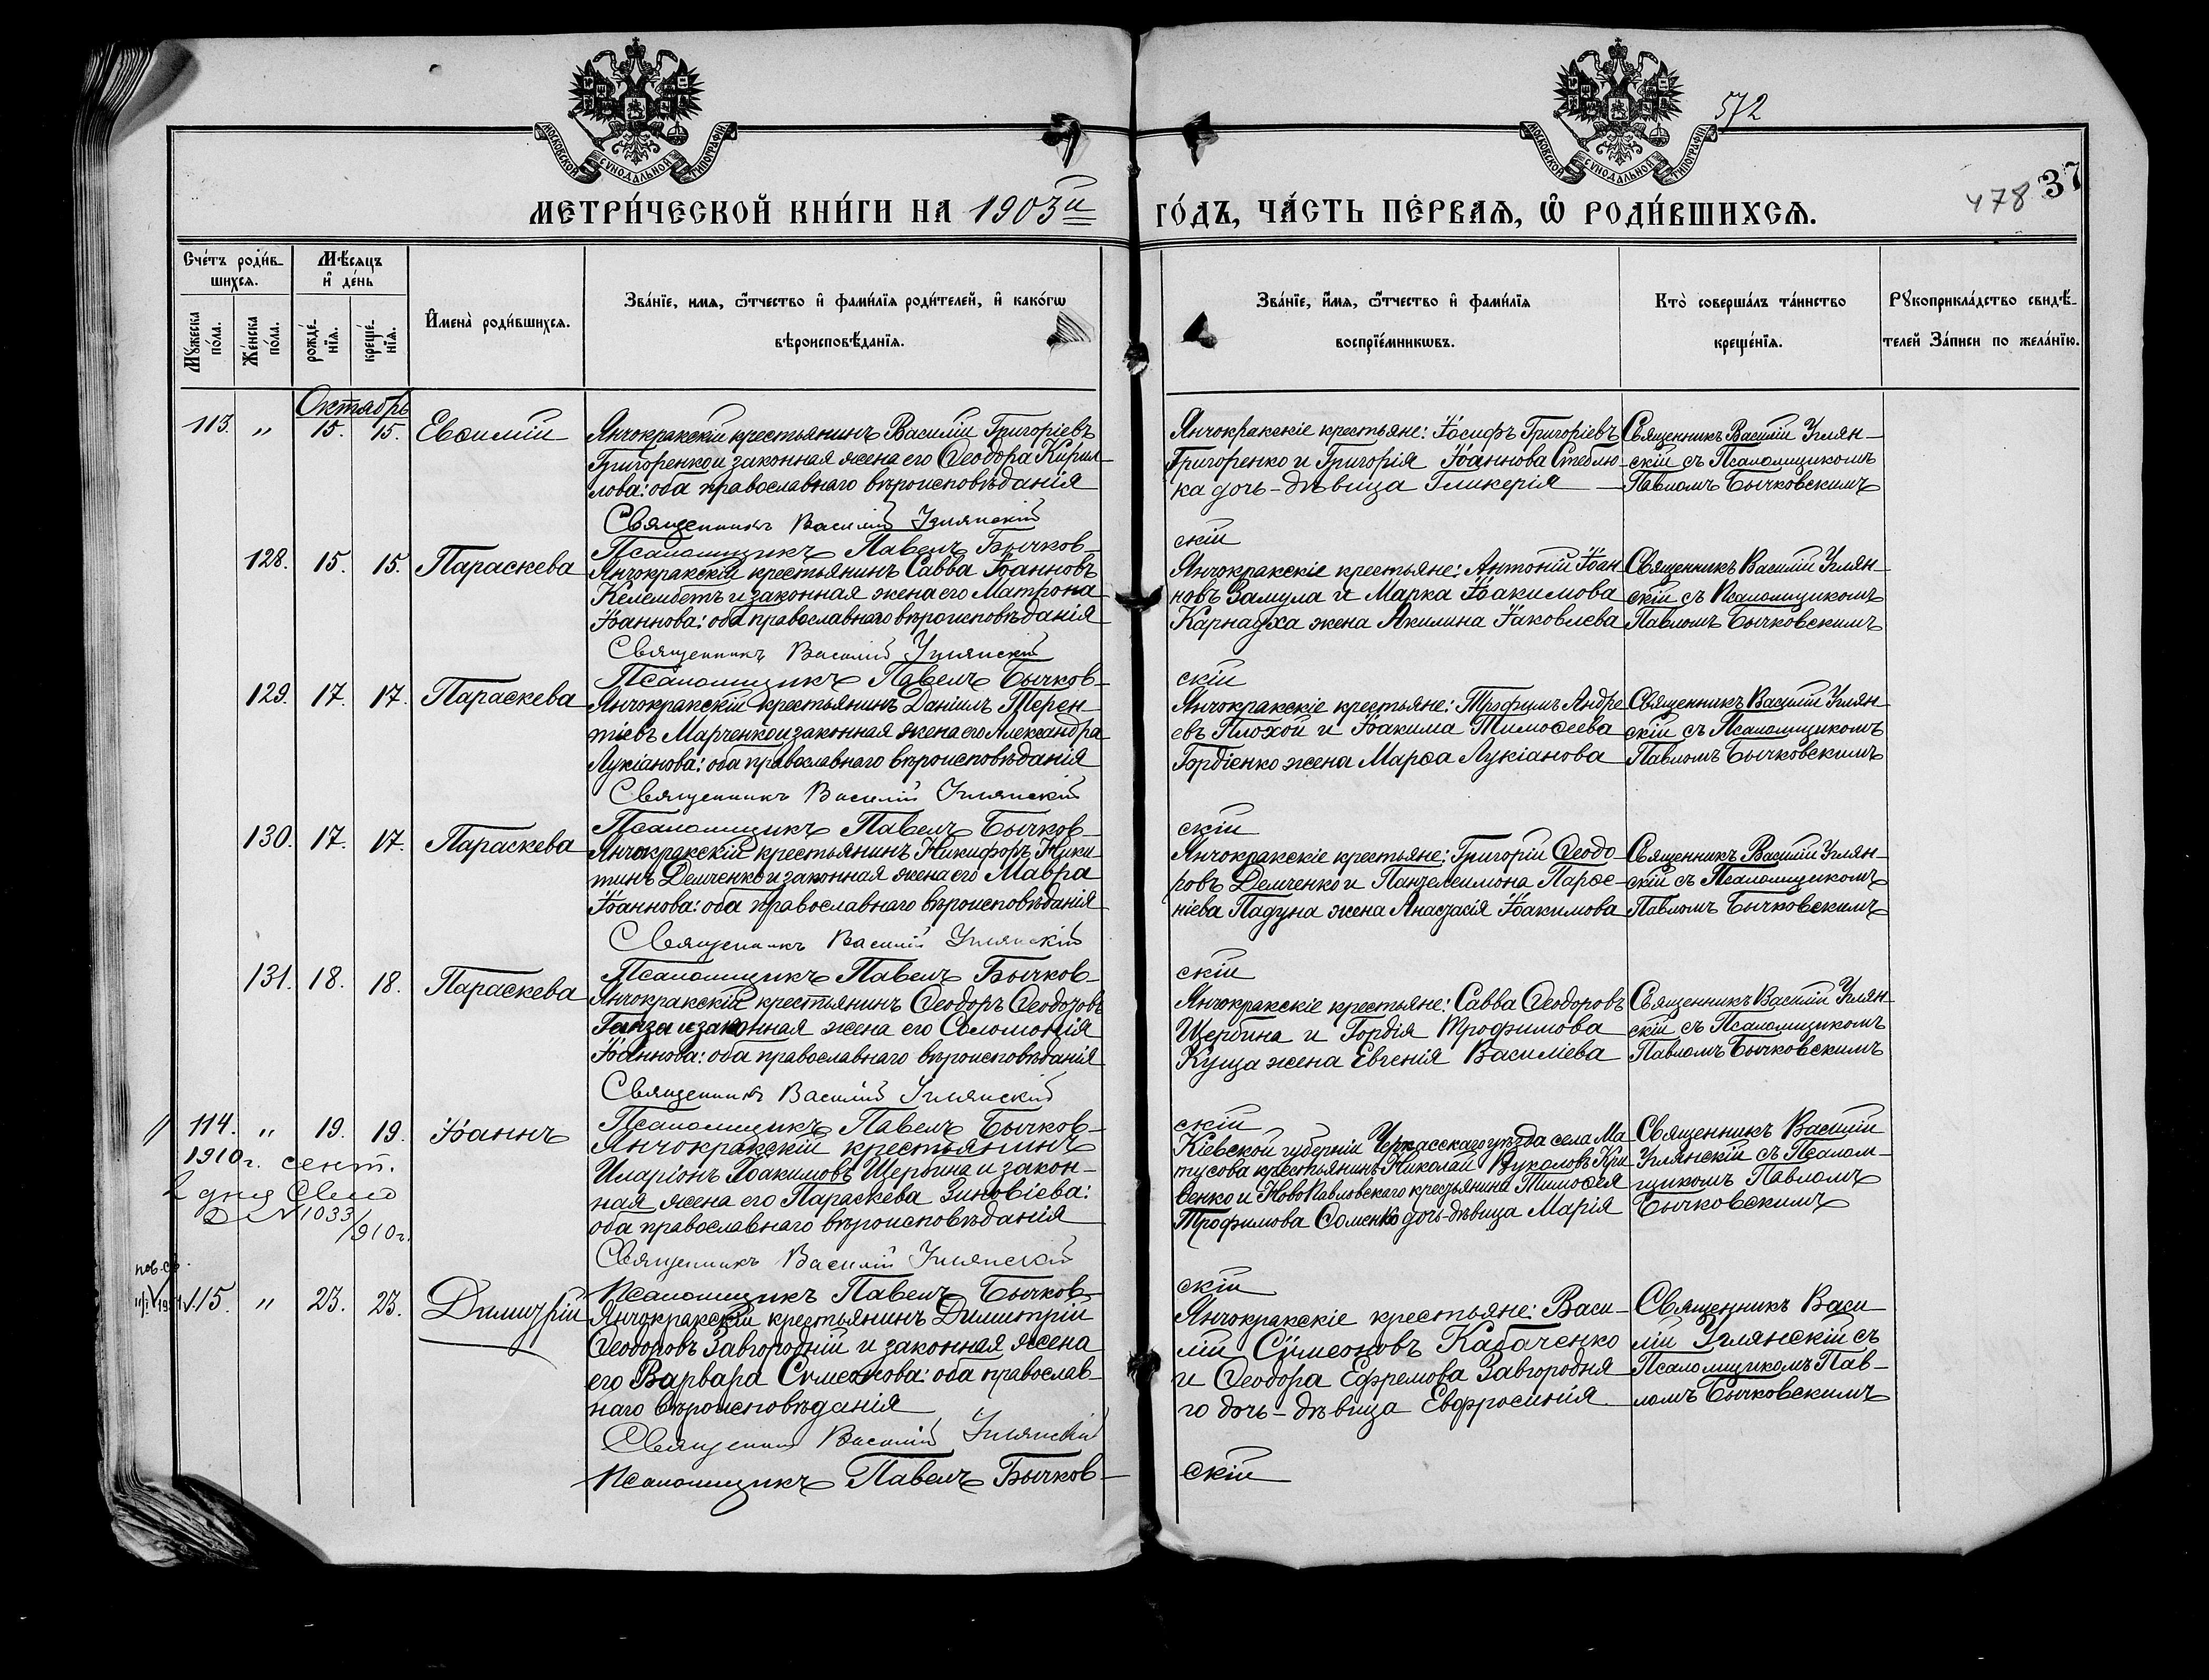 МОСКОВСКОЙ СѴНОДАЛЬНОЙ ТИПОГРАФІИ
МОСКОВСКОЙ СѴНОДАЛЬНОЙ ТИПОГРАФІИ
572
478 37
МЕТРИ́ЧЕСКОЙ КНИ́ГИ НА 1903й ГО́ДЪ, ЧА́СТЬ ПЕ́РВАѦ, Ѡ҆ РОДИ́ВШИХСѦ.
Сче́тъ роди́в-
шихсѧ.
Мꙋ́жеска по́ла.
Же́нска по́ла.
Мѣ́сѧцъ
и҆ де́нь
рожде́-нїѧ.
креще́-нїѧ.
И҆мена̀ роди́вшихсѧ.
Зва́нїе, имѧ, ѻ҆́тчество и҆ фами́лїѧ роди́телей, и҆ како́гѡ
вѣроисповѣ́данїѧ.
Зва́нїе, и҆́мѧ, ѻ҆́тчество и҆ фами́лїѧ
воспрїе́мникѡвъ.
Кто̀ соверша́лъ та́инство
креще́нїѧ.
Рꙋкоприкла́дство свидѣ́-
телей За́писи по жела́нїю.
Октябрь
113. " 15. 15. Евѳимій
Янчокракскій крестьянинъ Василій Григоріевъ
Григоренко и законная жена его Ѳеодора Кирил-
лова: оба православнаго вѣроисповѣданія
Священникъ Василій Углянскій
Псаломщикъ Павелъ Бычков-
Янчокракскіе крестьяне: Іосифъ Григоріевъ
Григоренко и Григорія Іоаннова Стеблю-
ка дочь-дѣвица Гликерія
скій
Священникъ Василій Углян-
скій съ Псаломщикомъ
Павломъ Бычковскимъ
128. 15. 15. Параскева
Янчокракскій крестьянинъ Савва Іоанновъ
Келембетъ и законная жена его Матрона
Іоаннова: оба православнаго вѣроисповѣданія
Священникъ Василій Углянскій
Псаломщикъ Павелъ Бычков-
Янчокракскіе крестьяне: Антоній Іоан
новъ Замула и Марка Іоакимова
Карнауха жена Акилина Іаковлева
скій
Священникъ Василій Углян-
скій съ Псаломщикомъ
Павломъ Бычковскимъ
129. 17. 17. Параскева
Янчокракскій крестьянинъ Даніилъ Терен
тіевъ Марченко и законная жена его Александра
Лукіанова: оба православнаго вѣроисповѣданія
Священникъ Василій Углянскій
Псаломщикъ Павелъ Бычков-
Янчокракскіе крестьяне: Трофимъ Андре
евъ Плохой и Іоакима Тимоѳеева
Гордіенко жена Марѳа Лукіанова
скій
Священникъ Василій Углян-
скій съ Псаломщикомъ
Павломъ Бычковскимъ
130. 17. 17. Параскева
Янчокракскій крестьянинъ Никифоръ Ники-
тинъ Демченко и законная жена его Мавра
Іоаннова: оба православнаго вѣроисповѣданія
Священникъ Василій Углянскій
Псаломщикъ Павелъ Бычков-
Янчокракскіе крестьяне: Григорій Ѳеодо-
ровъ Демченко и Пантелеимона Парѳе-
ніева Падуна жена Анастасія Іоакимова
скій
Священникъ Василій Углян-
скій съ Псаломщикомъ
Павломъ Бычковскимъ
131. 18. 18. Параскева
Янчокракскій крестьянинъ Ѳеодоръ Ѳеодоровъ
Ганза и законная жена его Соломонія
Іоаннова: оба православнаго вѣроисповѣданія
Священникъ Василій Углянскій
Псаломщикъ Павелъ Бычков-
Янчокракскіе крестьяне: Савва Ѳеодоровъ
Щербина и Гордія Трофимова
Куца жена Евгенія Василіева
скій
Священникъ Василій Углян-
скій съ Псаломщикомъ
Павломъ Бычковскимъ
114. " 19. 19. Іоаннъ
1910г. сент.
2 дня
№ 1033/910г.
Янчокракскій крестьянинъ
Иларіонъ Іоакимовъ Щербина и закон-
ная жена его Параскева Зиновіева:
оба православнаго вѣроисповѣданія
Священникъ Василій Углянскій
Псаломщикъ Павелъ Бычков-
Кіевской губерніи Черкасскаго уѣзда села Ма-
тусова крестьянинъ Николай Вуколовъ Кри
венко и НовоПавловскаго крестьянина Тимоѳея
Трофимова Ѳоменко дочь-дѣвица Марія
скій
Священникъ Василій
Углянскій съ Псалом-
щикомъ Павломъ
Бычковскимъ
115. " 23. 23. Димитрій
Янчокракскій крестьянинъ Димитрій
Ѳеодоровъ Завгородній и законная жена
его Варвара Сѵмеонова: оба православ-
наго вѣроисповѣданія
Священникъ Василій Углянскій
Псаломщикъ Павелъ Бычков-
Янчокракскіе крестьяне: Васи-
лій Сѵмеоновъ Кабаченко
и Ѳеодора Ефремова Завгородня-
го дочь-дѣвица Евфросинія
скій
Священникъ Васи-
лій Углянскій съ
Псаломщикомъ Пав-
ломъ Бычковскимъ